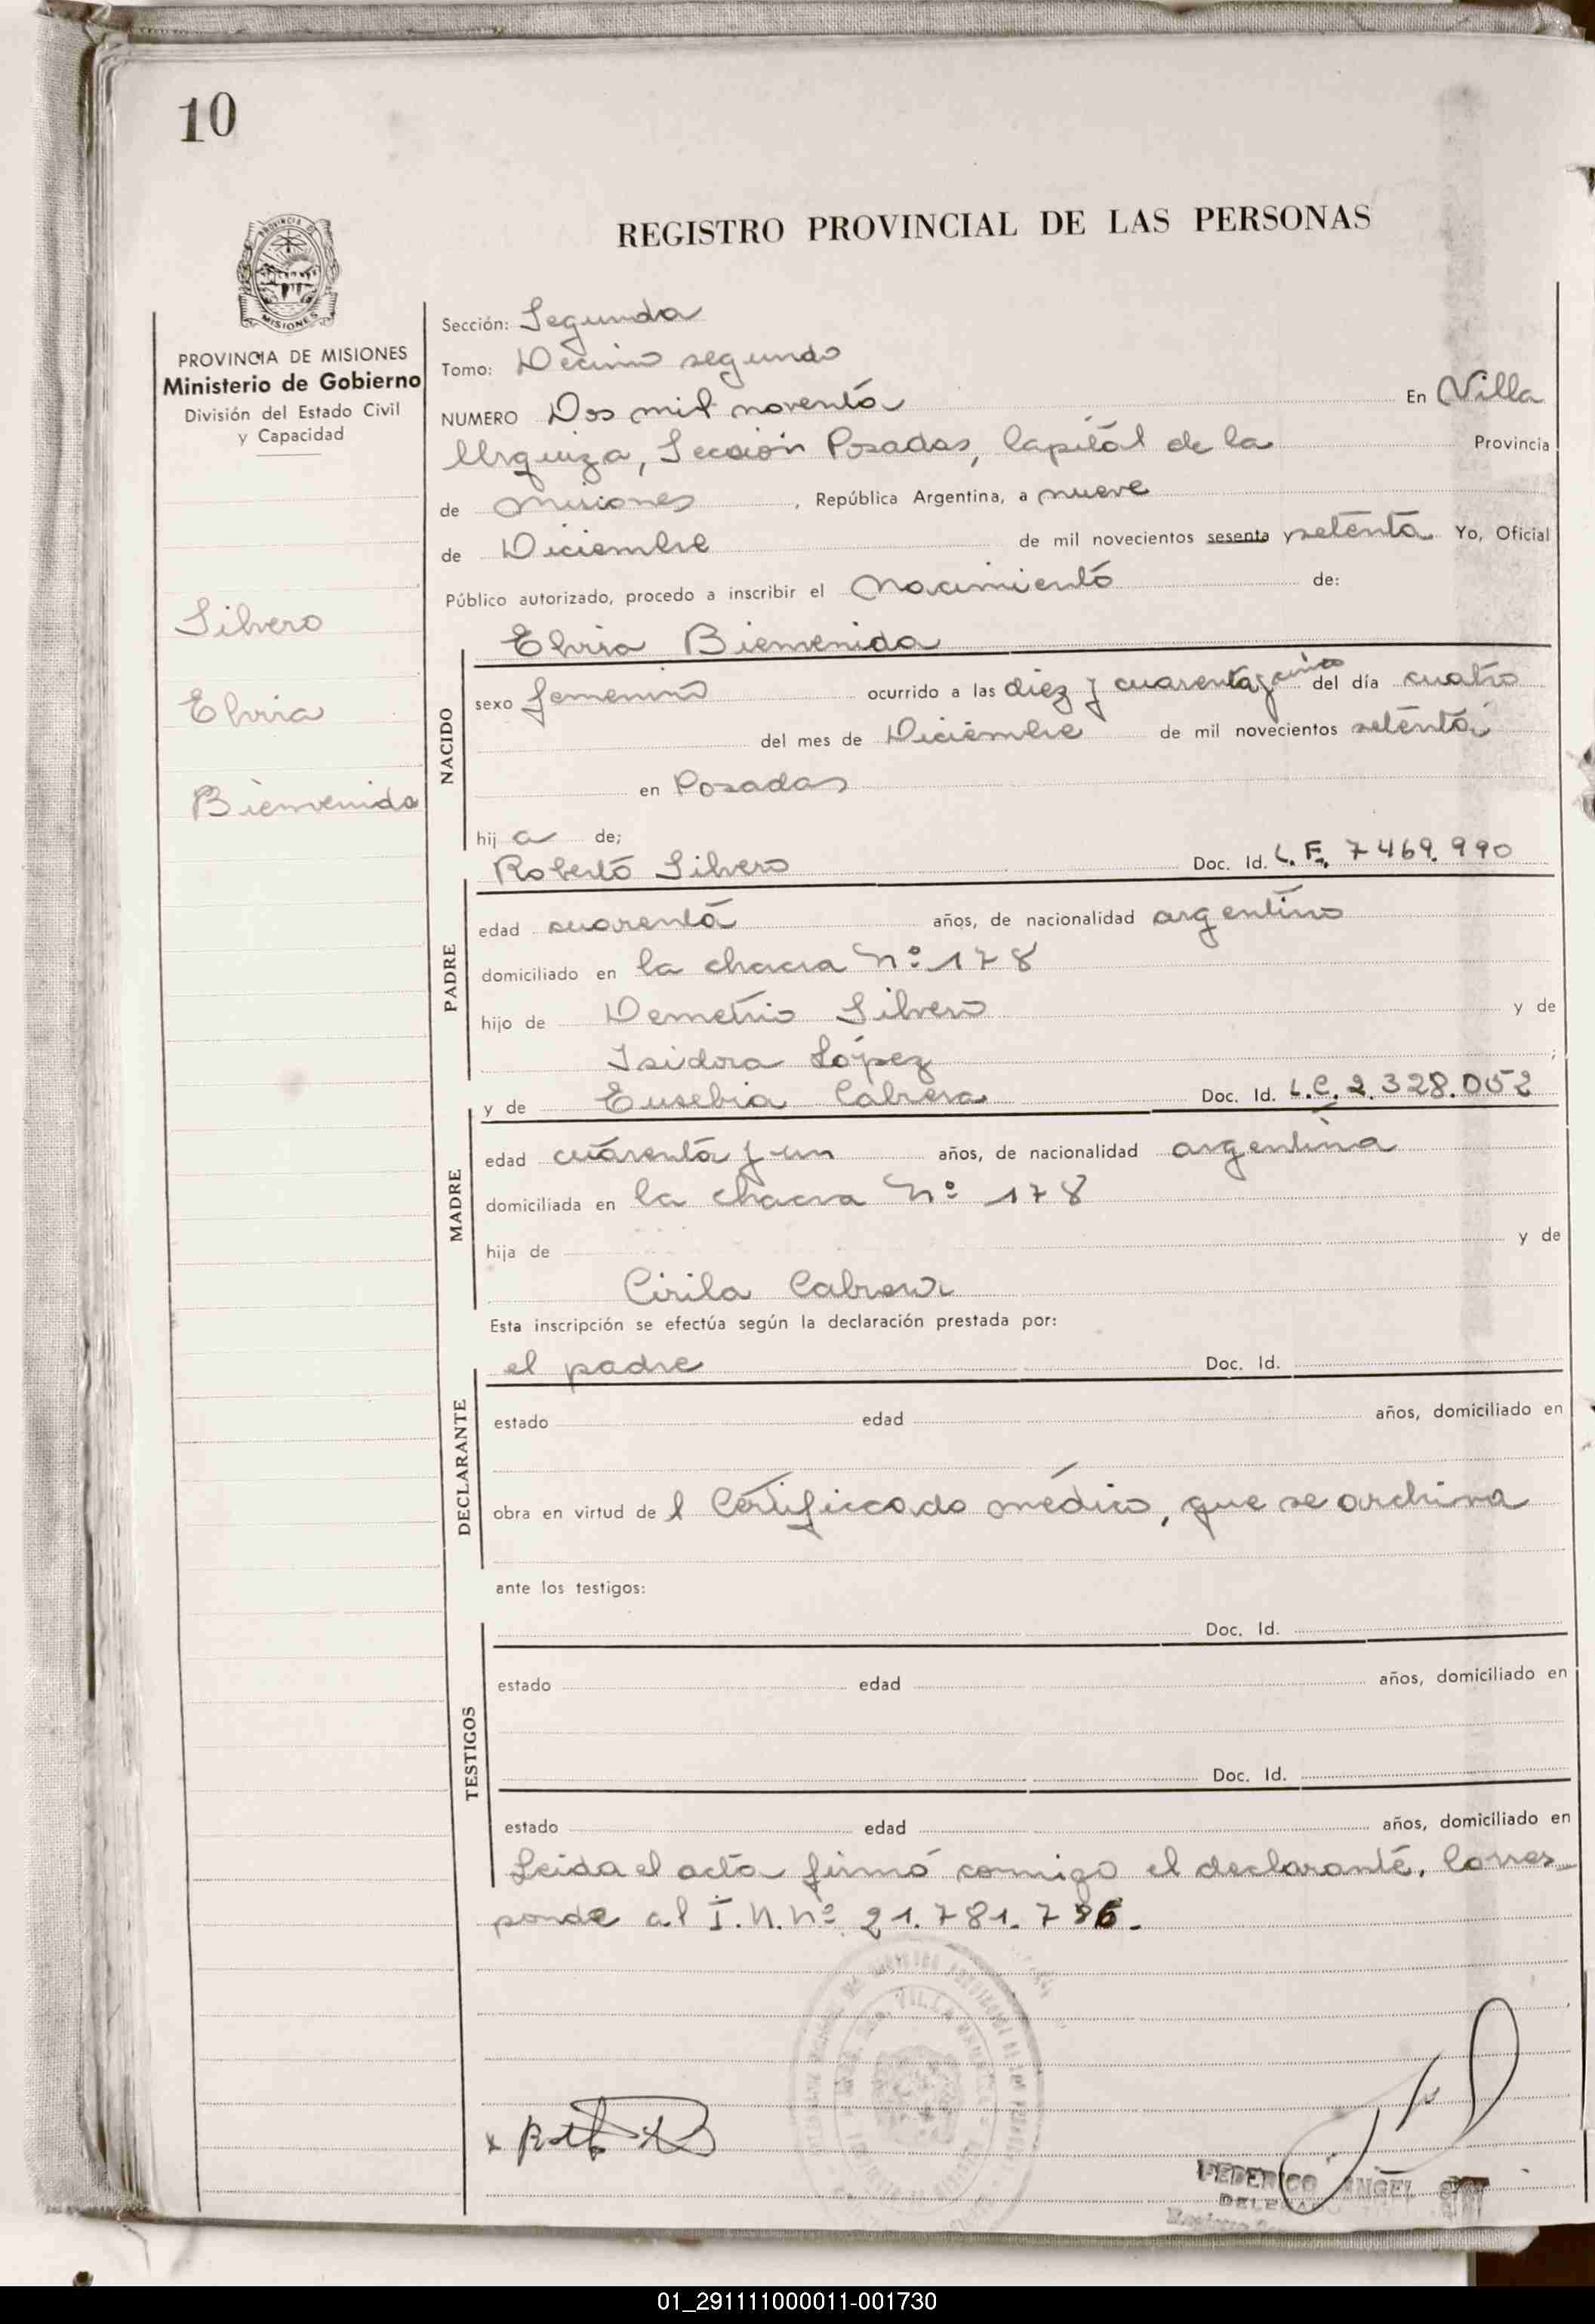 10
REGISTRO PROVINCIAL DE LAS PERSONAS
PROVINCIA DE MISIONES
Ministerio de Gobierno
División del Estado Civil
y Capacidad
Silvero
Elvira
Bienvenida
Sección: Segunda
Tomo: Decimo segundo
NUMERO Dos mil noventa En Villa
Urquiza, Sección Posadas, Capital de la Provincia
de Misiones, República Argentina, a nueve
de Diciembre de mil novecientos sesenta y setenta Yo, Oficial
Público autorizado, procedo a inscribir el Nacimiento de:
Elvira Bienvenida
NACIDO
sexo femenino ocurrido a las diez y cuarenta y cinco del día cuatro
del mes de Diciembre de mil novecientos setenta
en Posadas
hij a de;
Roberto Silvero Doc. Id. L. E. 7469.990
PADRE
edad cuarenta años, de nacionalidad argentino
domiciliado en la chacra Nº 178
hijo de Demetrio Silvero y de
Isidora López ;
y de Eusebia Cabrera Doc. Id. L.C. 2.328.052
MADRE
edad cuarenta y un años, de nacionalidad argentina
domiciliada en la chacra Nº 178
hija de y de
Cirila Cabrera
Esta inscripción se efectúa según la declaración prestada por:
el padre Doc. Id.
DECLARANTE
estado edad años, domiciliado en
obra en virtud de l Certificado médico, que se archiva
ante los testigos:
Doc. Id.
TESTIGOS
estado edad años, domiciliado en
Doc. Id.
estado edad años, domiciliado en
Leida el acta firmó conmigo el declarante. Corres-
ponde al I.N.Nº 21.781.
FEDERICO ANGEL
01_291111000011-001730